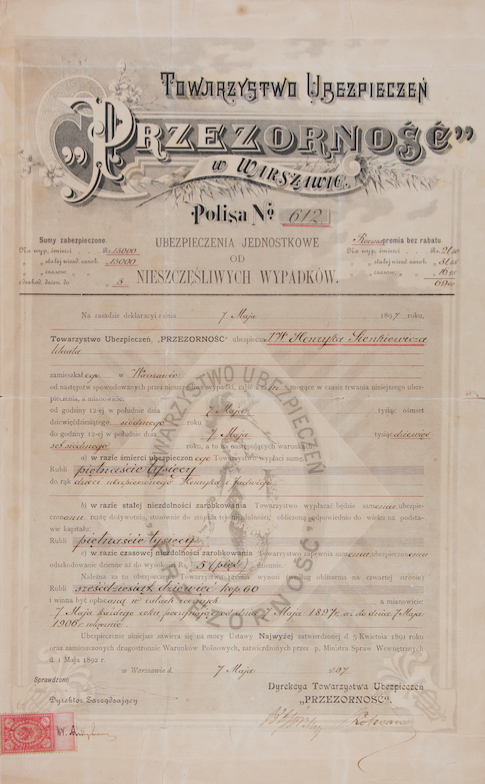 TOWARZYSTWO UBEZPIECZEŃ
„PRZEZORNOŚĆ”
W WARSZAWIE.
Polisa Nº 612
Sumy zabezpieczone.
Na wyp. śmierci Rs. 15000
" " stałej niezd. zarob. " 15000
" " czasow. "
" odszkod. dzien. do " 5
UBEZPIECZENIA JEDNOSTKOWE
OD
NIESZCZĘŚLIWYCH WYPADKÓW.
premia bez rabatu
Na wyp. śmierci Rs.
" " stałej niezd. zarob. "
" " czasow. "
Na zasadzie deklaracyi z dnia 7 Maja 1897 roku,
Towarzystwo Ubezpieczeń, „PRZEZORNOŚĆ” ubezpiecza JW Henryka Sienkiewicza
zamieszkałego w Warszawie
od następstw spowodowanych przez nieszczęśliwy wypadek, zajść z nim mogące w czasie trwania niniejszego ubez-
pieczenia, a mianowicie:
od godziny 12-ej w południe dnia 7 Maja tysiąc ośmset
dziewięćdziesiątego siódmego roku
do godziny 12-ej w południe dnia 7 Maja tysiąc dziewięć
set siódmego roku, a to na następujących warunkach:
a) w razie śmierci ubezpieczonego Towarzystwo wypłaci sumę
Rubli piętnaście tysięcy
do rąk dzieci ubezpieczonego Henryka i Jadwigi
b) w razie stałej niezdolności zarobkowania Towarzystwo wypłacać będzie samemu ubezpie-
czonemu rentę dożywotnią, stosownie do stopnia tej niezdolności, obliczoną odpowiednio do wieku na podsta-
wie kapitału:
Rubli piętnaście tysięcy
c) w razie czasowej niezdolności zarobkowania Towarzystwo zapewnia samemu ubezpieczonemu
odszkodowanie dzienne aż do wysokości Rs. 5 (pięć) dziennie.
Należna za to ubezpieczenie Towarzystwu premia wynosi podług obliczenia na czwartej stronie
Rubli sześćdziesiąt dziewięć kop. 60
i winna być opłacaną w ratach rocznych a mianowicie:
7 Maja każdego roku począwszy od dnia 7 Maja 1897 r. aż do dnia 7 Maja
1906 r. włącznie
Ubezpieczenie niniejsze zawiera się na mocy Ustawy Najwyżej zatwierdzonej d. 5 Kwietnia 1891 roku
oraz zamieszczonych drugostronnie Warunków Polisowych, zatwierdzonych przez p. Ministra Spraw Wewnętrznych
d. 1 Maja 1892 r.
w Warszawie d. 7 Maja 1897
Sprawdzono
Dyrektor Zarządzający
Dyrekcya Towarzystwa Ubezpieczeń
„PRZEZORNOŚĆ”.
TOWARZYSTWO UBEZPIECZEŃ
PRZEZORNOŚĆ